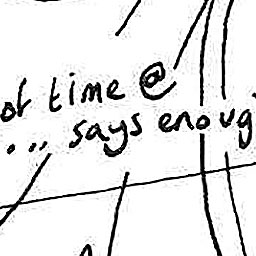 of time @
... says enoug